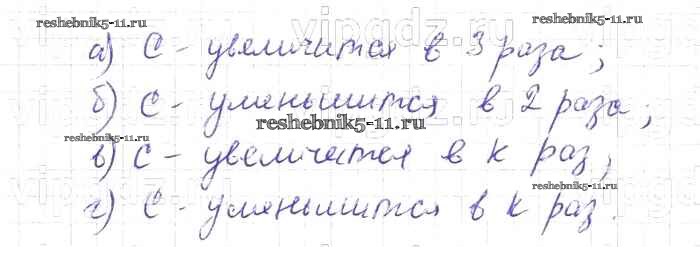 reshebnik5-11.ru
reshebnik5-11.ru
а) С - увеличится в 3 раза;
б) С - уменьшится в 2 раза;
reshebnik5-11.ru
reshebnik5-11.ru
в) С - увеличится в к раз;
reshebnik5-11.ru
г) С - уменьшится в к раз.